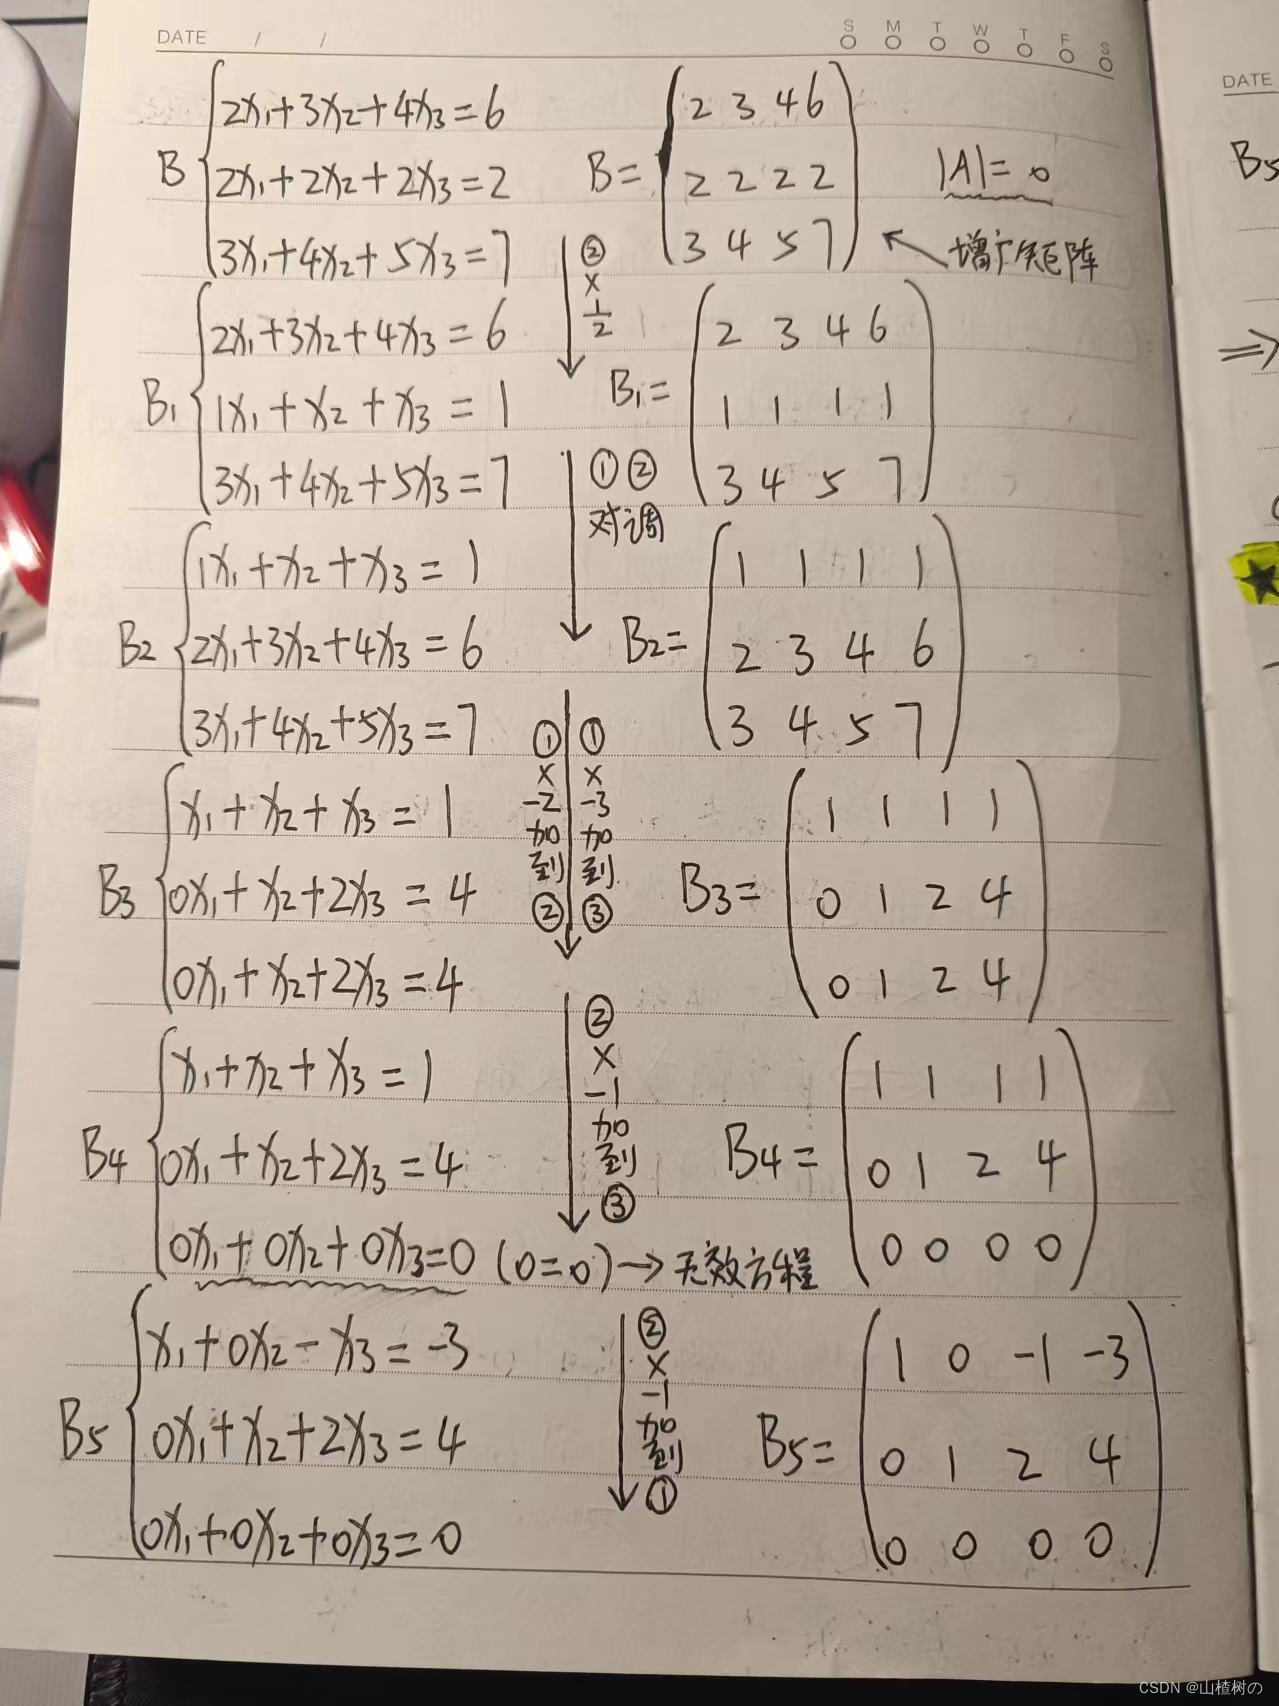 DATE / /
S M T W T F S
B { 2x₁+3x₂+4x₃=6
2x₁+2x₂+2x₃=2
3x₁+4x₂+5x₃=7
B= ( 2 3 4 6
2 2 2 2
3 4 5 7 )
|A|=0
增广矩阵
② × 1/2
B₁ { 2x₁+3x₂+4x₃=6
1x₁+x₂+x₃=1
3x₁+4x₂+5x₃=7
B₁= ( 2 3 4 6
1 1 1 1
3 4 5 7 )
①②
对调
B₂ { 1x₁+x₂+x₃=1
2x₁+3x₂+4x₃=6
3x₁+4x₂+5x₃=7
B₂= ( 1 1 1 1
2 3 4 6
3 4 5 7 )
①×-2加到②
①×-3加到③
B₃ { x₁+x₂+x₃=1
0x₁+x₂+2x₃=4
0x₁+x₂+2x₃=4
B₃= ( 1 1 1 1
0 1 2 4
0 1 2 4 )
②×-1加到③
B₄ { x₁+x₂+x₃=1
0x₁+x₂+2x₃=4
0x₁+0x₂+0x₃=0 (0=0)→无效方程
B₄= ( 1 1 1 1
0 1 2 4
0 0 0 0 )
②×-1加到①
B₅ { x₁+0x₂-x₃=-3
0x₁+x₂+2x₃=4
0x₁+0x₂+0x₃=0
B₅= ( 1 0 -1 -3
0 1 2 4
0 0 0 0 )
DATE
B₅
⇒
CSDN @山楂树の